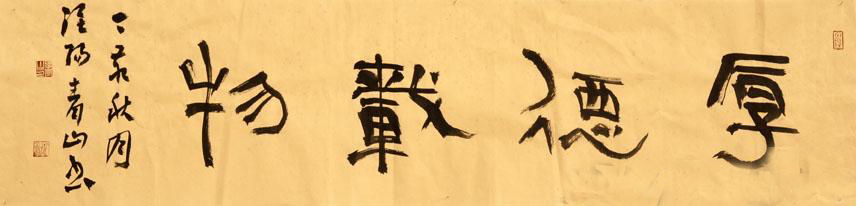 厚德載物
丁亥秋月
陽青山書